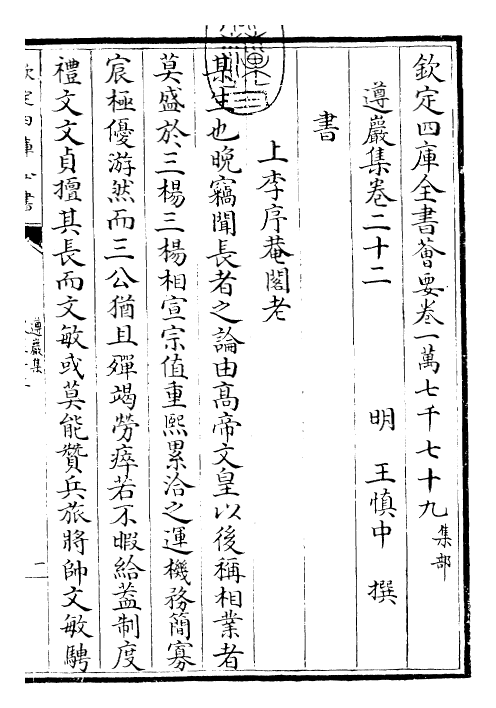 欽定四庫全書薈要卷一萬七千七十九 集部
遵巖集卷二十二 明 王慎中 撰
書
上李序菴閣老
某生也晚竊聞長者之論由高帝文皇以後稱相業者
莫盛於三楊三楊相宣宗值重熙累洽之運機務簡寡
宸極優游然而三公猶且殫竭勞瘁若不暇給蓋制度
禮文文貞擅其長而文敏或莫能贊兵旅將帥文敏騁
欽定四庫全書
遵巖集